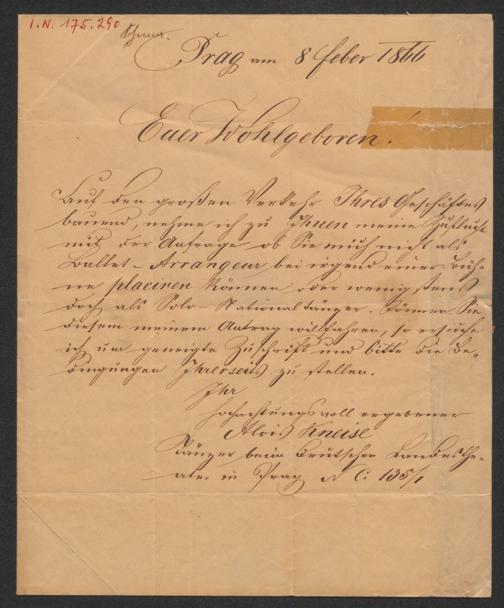 I.N. 175.290
Prag am 8 feber 1866
Euer Wohlgeboren.
Auf den großen Verkehr Ihres Geschäftes
bauend, nehme ich zu Ihnen meine Zuflucht
mit der Anfrage ob Sie mich nicht als
Ballet-Arrangeur bei irgend einer Büh
ne placiren können oder wenigstens
doch als Solo-Nationaltänzer. Können Sie
diesem meinem Antrag willfahren, so ersuche
ich um geneigte Zuschrift und bitte die Be-
dingungen Ihrerseits zu stellen.
Ihr
hochachtungsvoll ergebener
Alois Kneisl
Tänzer beim deutschen Landesthe-
ater in Prag N C: 135/1